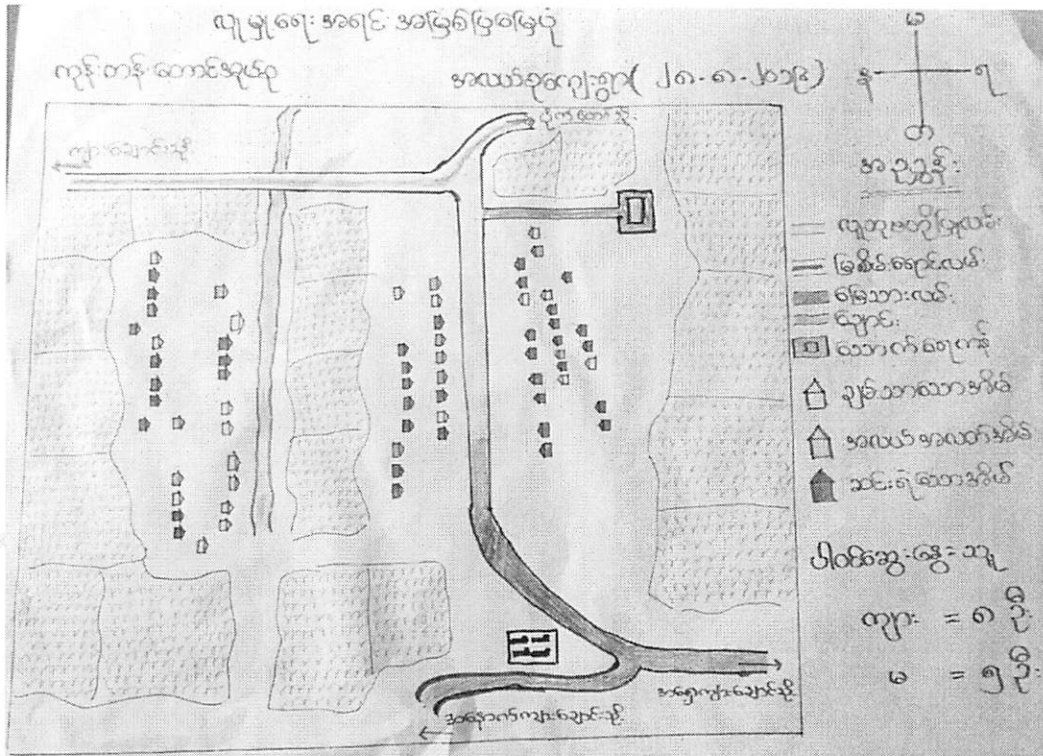 လူမှုရေး အရင်းအမြစ်ပြမြေပုံ
ကုန်းတန်းတောင်အုပ်စု အလယ်စုကျေးရွာ( ၂၈-၈-၂၀၁၉)
မ
န ရ
တ
ကျားချောင်းသို့
အညွှန်း
လူဘုမတိုပြုလမ်း
မြစိမ်းရောင်လမ်း
မြေသားလမ်း
ချောင်း
သောက်ရေကန်
ချမ်းသာသောအိမ်
အလယ်အလတ်အိမ်
ဆင်းရဲသောအိမ်
ပါဝင်ဆွေးနွေးသူ
ကျား = ၈ ဦး
မ = ၅ ဦး
အရှေ့ကျားချောင်းသို့
အနောက်ကျားချောင်းသို့